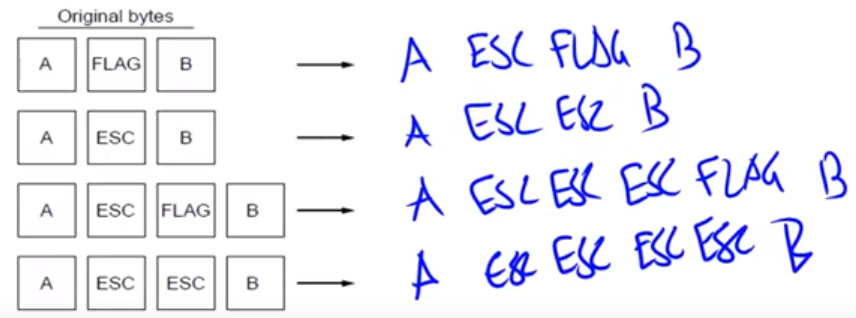 Original bytes
A FLAG B A ESC FLAG B
A ESC B A ESC ESC B
A ESC FLAG B A ESC ESC ESC FLAG B
A ESC ESC B A ESC ESC ESC ESC B